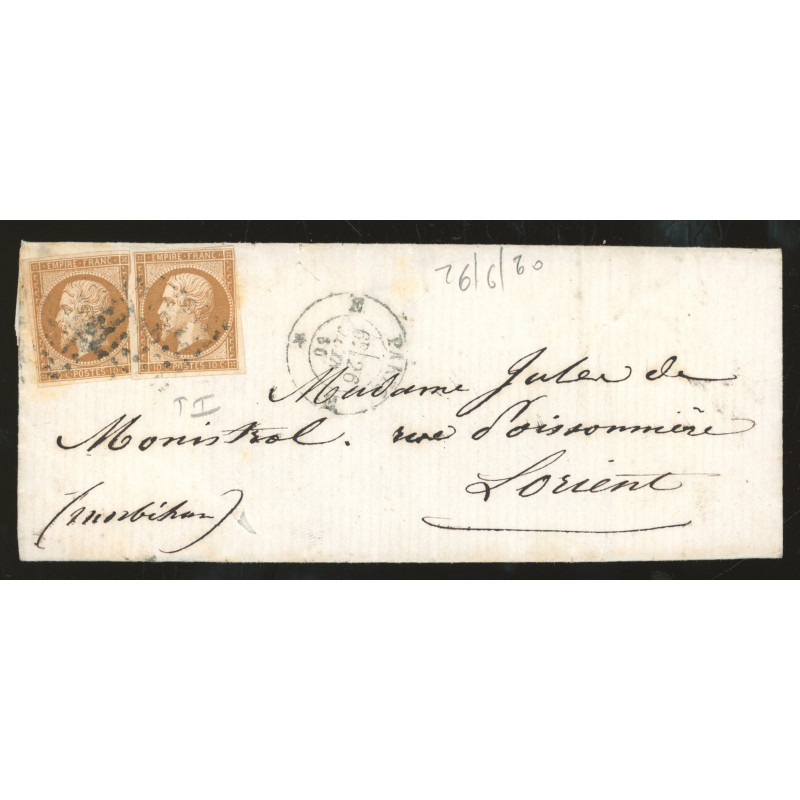 EMPIRE FRANC EMPIRE FRANC
10 C POSTES 10 C POSTES 10 C
26/6/60
E PARIS 26 60
T I
Madame Jules de
Monistrol. rue Poissonnière
Lorient
(Morbihan)